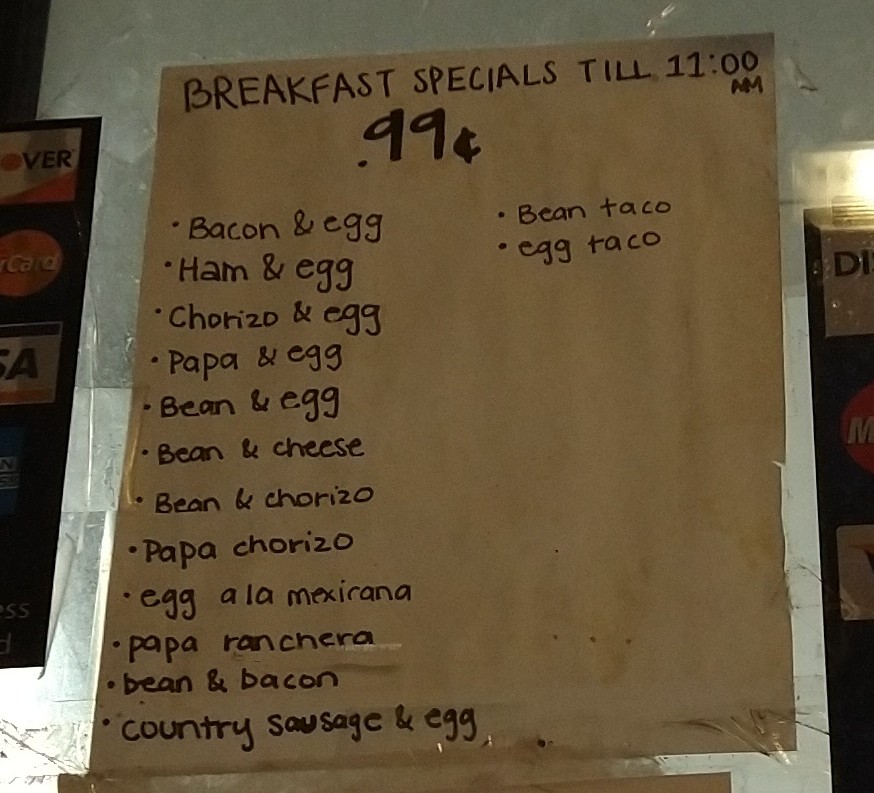 BREAKFAST SPECIALS TILL 11:00
AM
.99¢
• Bacon & egg
• Ham & egg
• Chorizo & egg
• Papa & egg
• Bean & egg
• Bean & cheese
• Bean & chorizo
• Papa chorizo
• egg a la mexicana
• papa ranchera
• bean & bacon
• country sausage & egg
• Bean taco
• egg taco
OVER
rCard
SA
DI
M